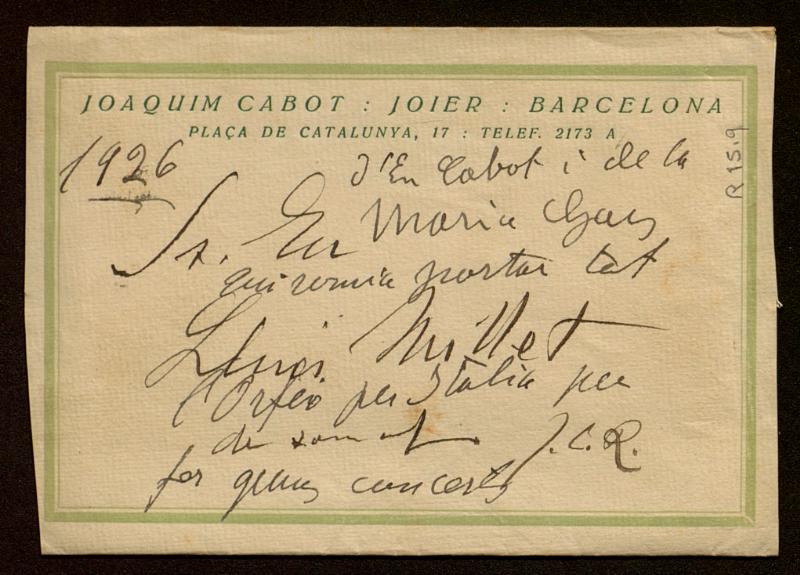 JOAQUIM CABOT : JOIER : BARCELONA
PLAÇA DE CATALUNYA, 17 : TELEF. 2173 A
R 15.9
1926
d'En Cabot i de la
Sr. En Maria
portar tot
Lluis Millet
l'Orfeó per Italia per
de J.C.R.
fer concerts